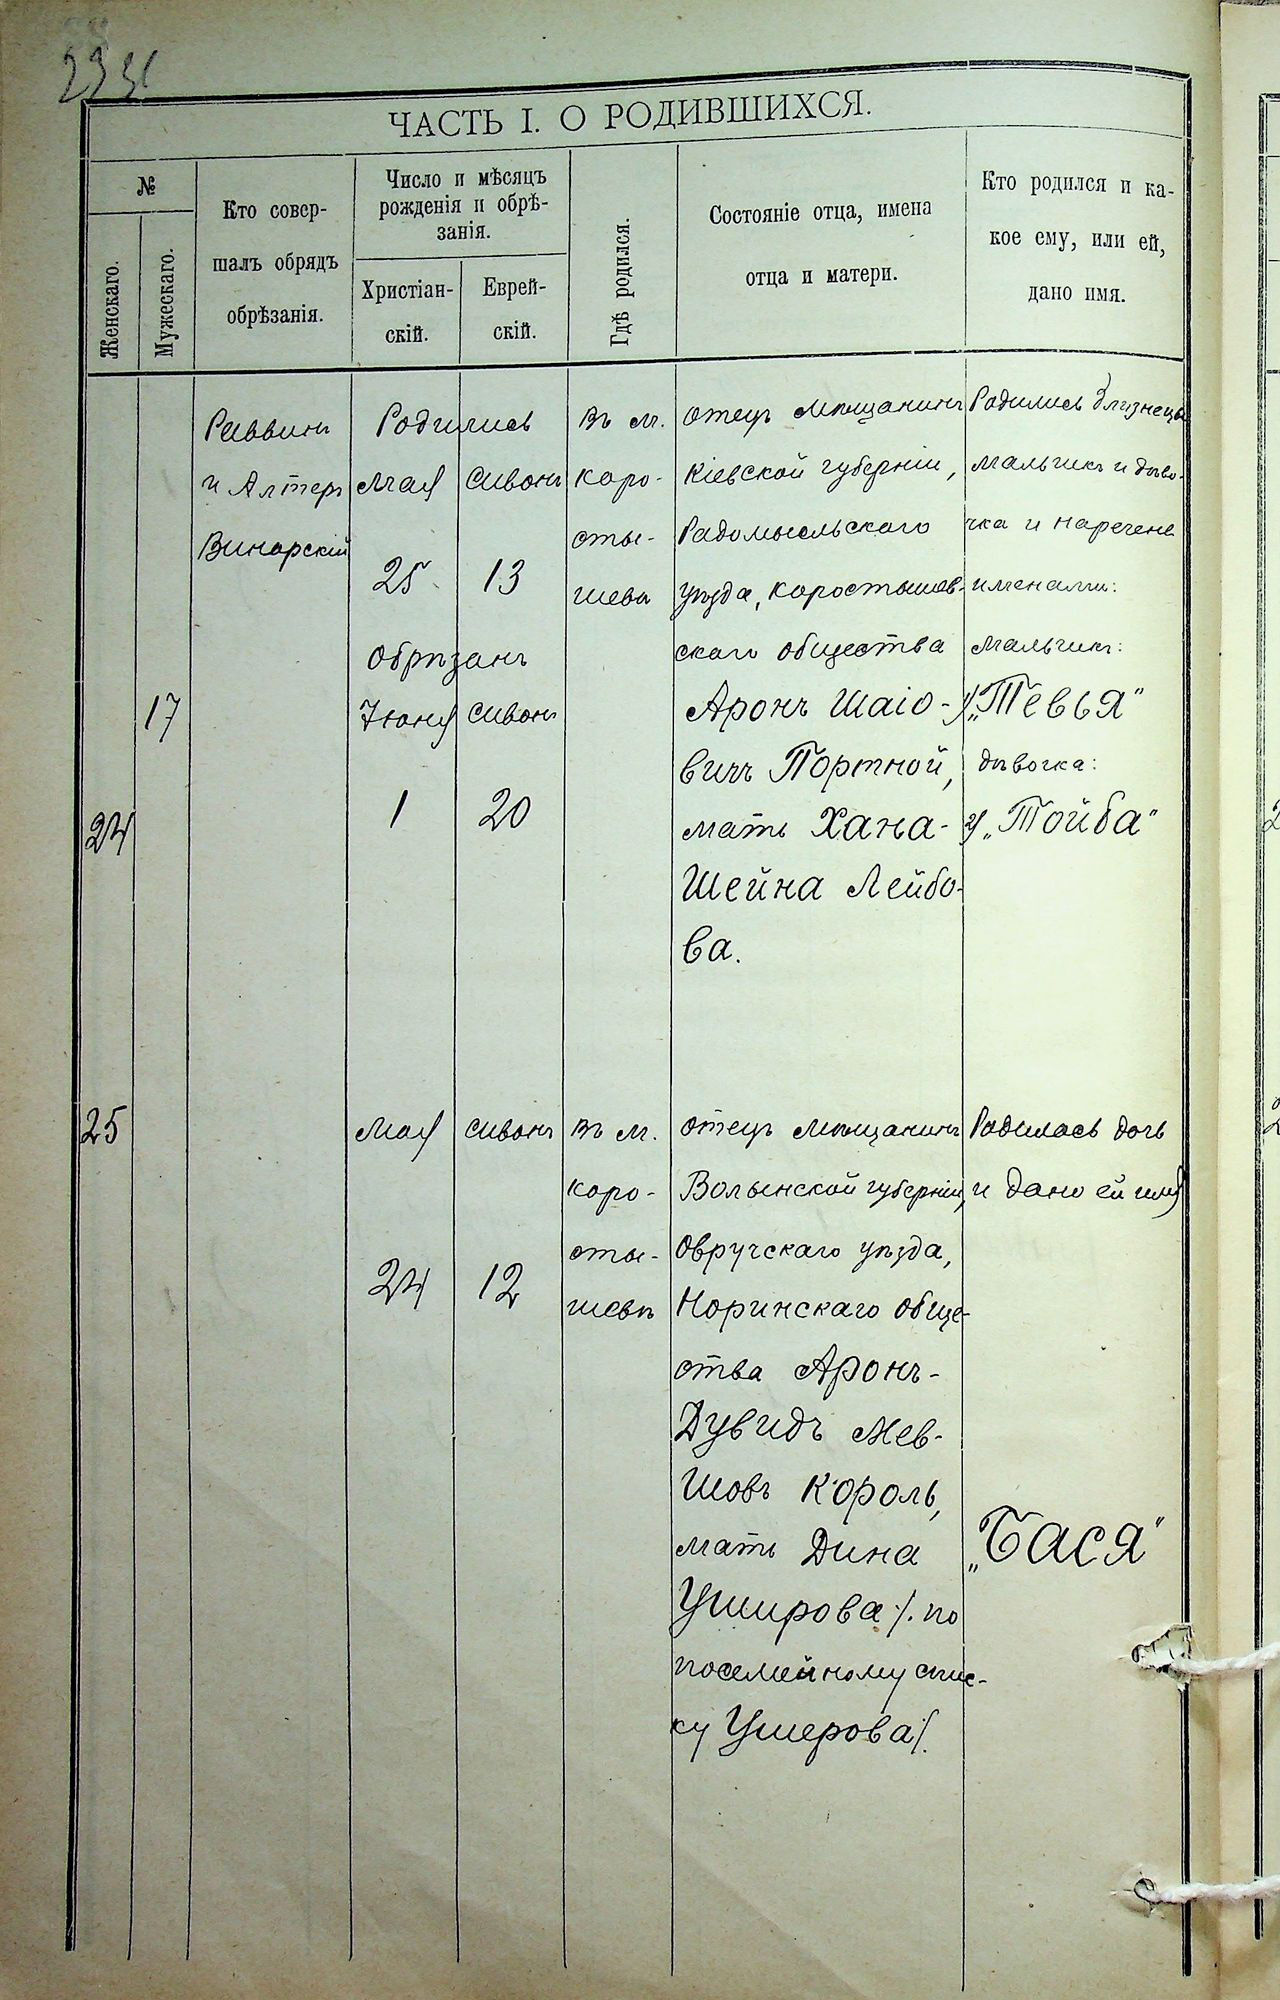 ЧАСТЬ I. О РОДИВШИХСЯ.
№
Женскаго.
Мужескаго.
Кто совер-
шалъ обрядъ
обрѣзанія.
Число и мѣсяцъ
рожденія и обрѣ-
занія.
Христіан-
скій.
Еврей-
скій.
Гдѣ родился.
Состояніе отца, имена
отца и матери.
Кто родился и ка-
кое ему, или ей,
дано имя.
24
17
Раввинъ
и Алтеръ
Винарскій
Родились
Мая Сивонъ
25 13
Обрѣзанъ
Іюня Сивонъ
1 20
въ м.
Коро-
сты-
шевѣ
Отецъ мѣщанинъ
Кіевской губерніи,
Радомысльскаго
уѣзда, Коростышев-
скаго общества
Аронъ Шаіо-
вичъ Портной,
мать Хана-
Шейна Лейбо-
ва.
Родились близнецы
мальчикъ и дѣво-
чка и наречены
именами:
мальчикъ:
1/ „Тевья"
дѣвочка:
2/ „Тойба"
25
Мая Сивонъ
24 12
въ м.
Коро-
сты-
шевѣ
Отецъ мѣщанинъ
Волынской губерніи,
Овручскаго уѣзда,
Норинскаго обще-
ства Аронъ-
Дувидъ Мев-
шовъ Король,
мать Дина
Уширова /. по
посемейному спис-
ку Ушерова /.
Родилась дочь
и дано ей имя
„Бася"